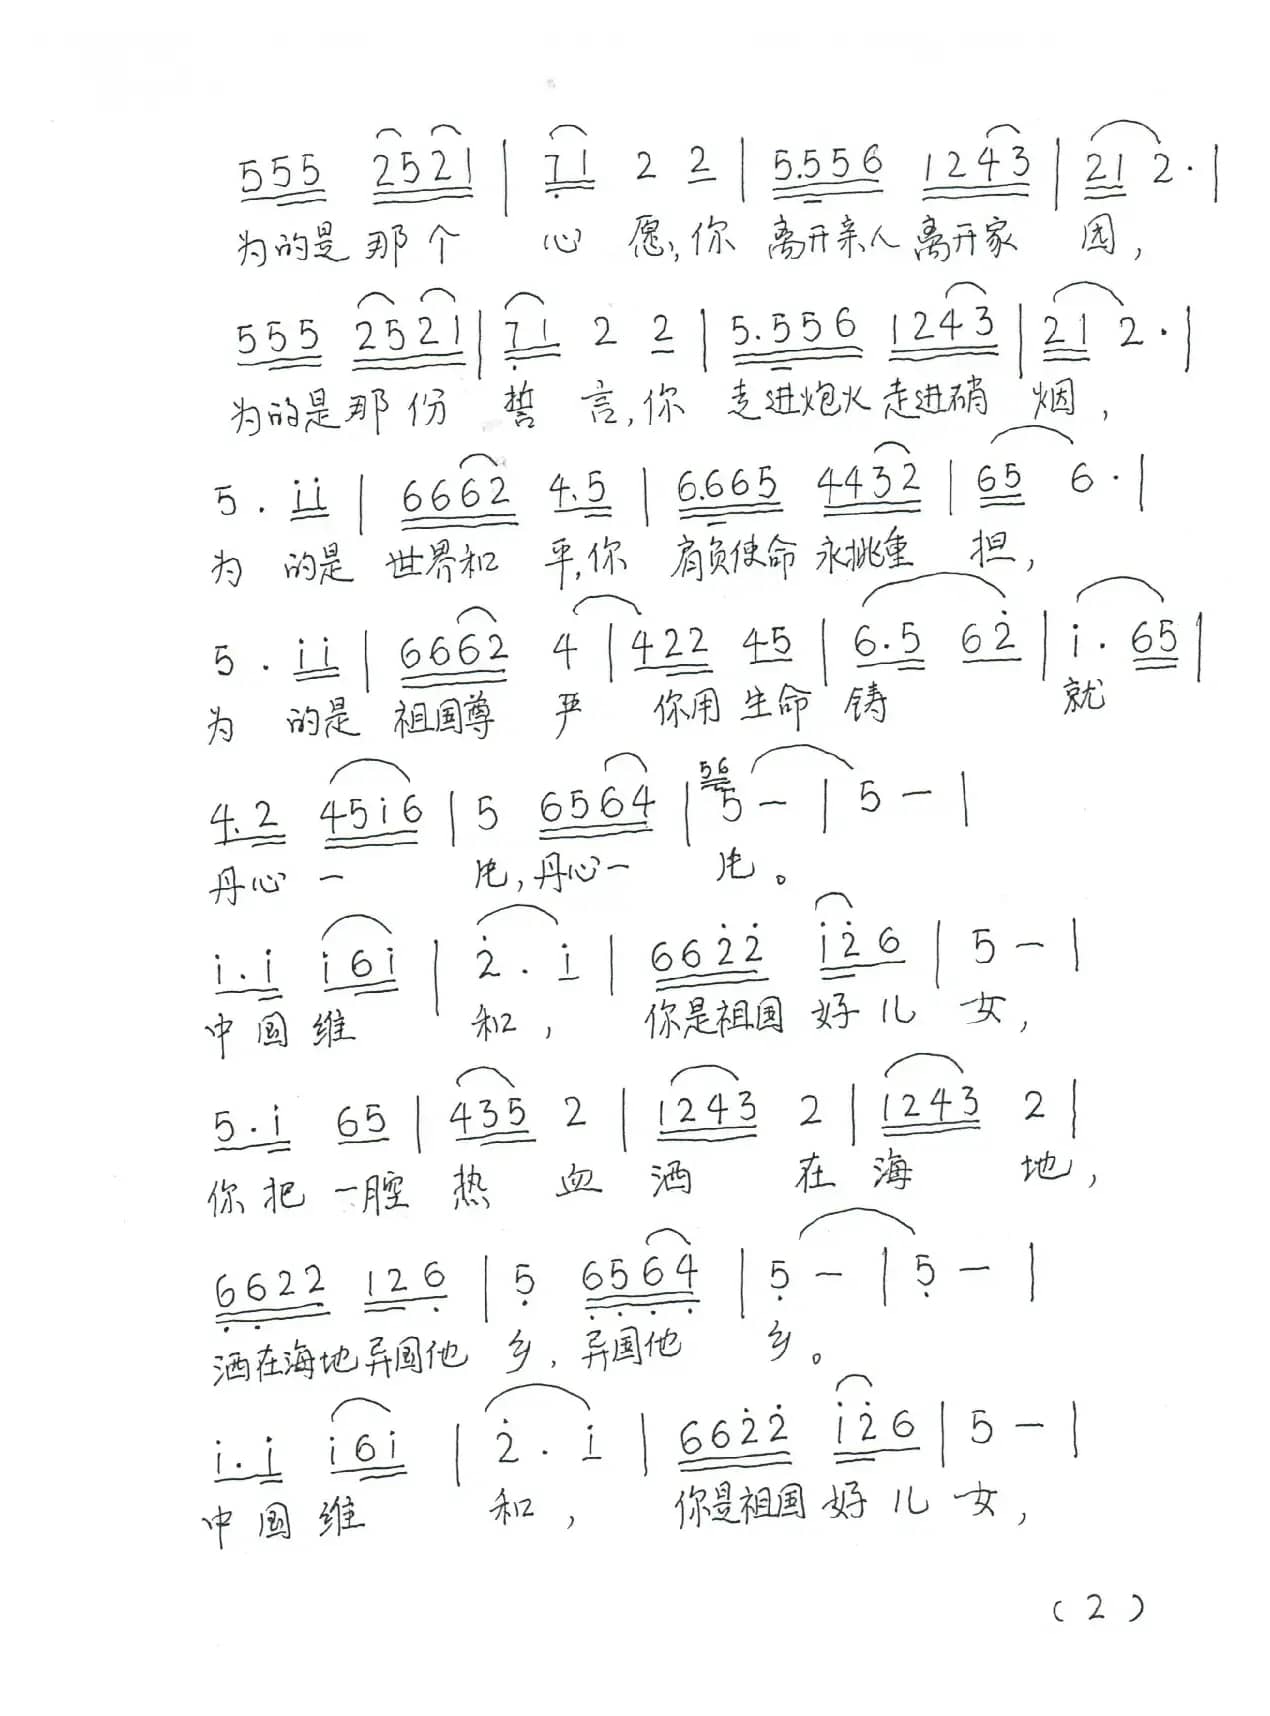 555 2521 | 71 2 2 | 5.556 1243 | 21 2· |
为的是那个 心 愿,你 离开亲人离开家 园,
555 2521 | 71 2 2 | 5.556 1243 | 21 2· |
为的是那份 誓 言,你 走进炮火走进硝 烟,
5. i̇i̇ | 6662 4.5 | 6.665 4432 | 65 6· |
为 的是 世界和 平,你 肩负使命永挑重 担,
5. i̇i̇ | 6662 4 | 422 45 | 6.5 62̇ | i̇. 65 |
为 的是 祖国尊 严 你用 生命 铸 就
56
4.2 45i̇6 | 5 6564 | 5 — | 5 — |
丹心 一 片,丹心一 片。
i̇.i̇ i̇6i̇ | 2̇. i̇ | 662̇2̇ i̇2̇6 | 5 — |
中国维 和, 你是祖国 好儿 女,
5.i̇ 65 | 435 2 | 1243 2 | 1243 2 |
你把 一腔 热 血 洒 在 海 地,
6̣6̣22 126̣ | 5̣ 6̣5̣6̣4̣ | 5̣ — | 5̣ — |
洒在海地异国他 乡, 异国他 乡。
i̇.i̇ i̇6i̇ | 2̇. i̇ | 662̇2̇ i̇2̇6 | 5 — |
中国维 和, 你是祖国 好儿 女,
(2)